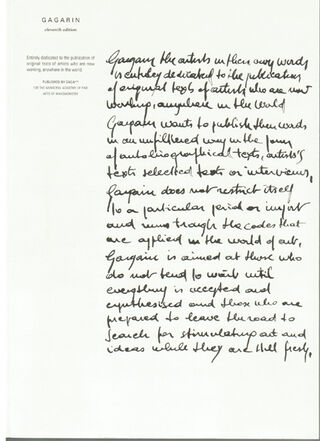 GAGARIN
eleventh edition
Entirely dedicated to the publication of
original texts of artists who are now
working, anywhere in the world.
PUBLISHED BY GAGA
FOR THE MUNICIPAL ACADEMY OF FINE
ARTS OF WAASMUNSTER
Gagarin the artists in their own words
is entirely dedicated to the publication
of original texts of artists who are now
working, anywhere in the world
Gagarin wants to publish their words
in an unfiltered way in the form
of autobiographical texts, artists's
texts selected texts or interviews,
Gagarin does not restrict itself
to a particular period or import
and runs trough the codes that
are applied in the world of art.
Gagarin is aimed at those who
do not tend to wait until
everything is accepted and
synthesised and those who are
prepared to leave the road to
search for stimulating art and
ideas while they are still fresh.